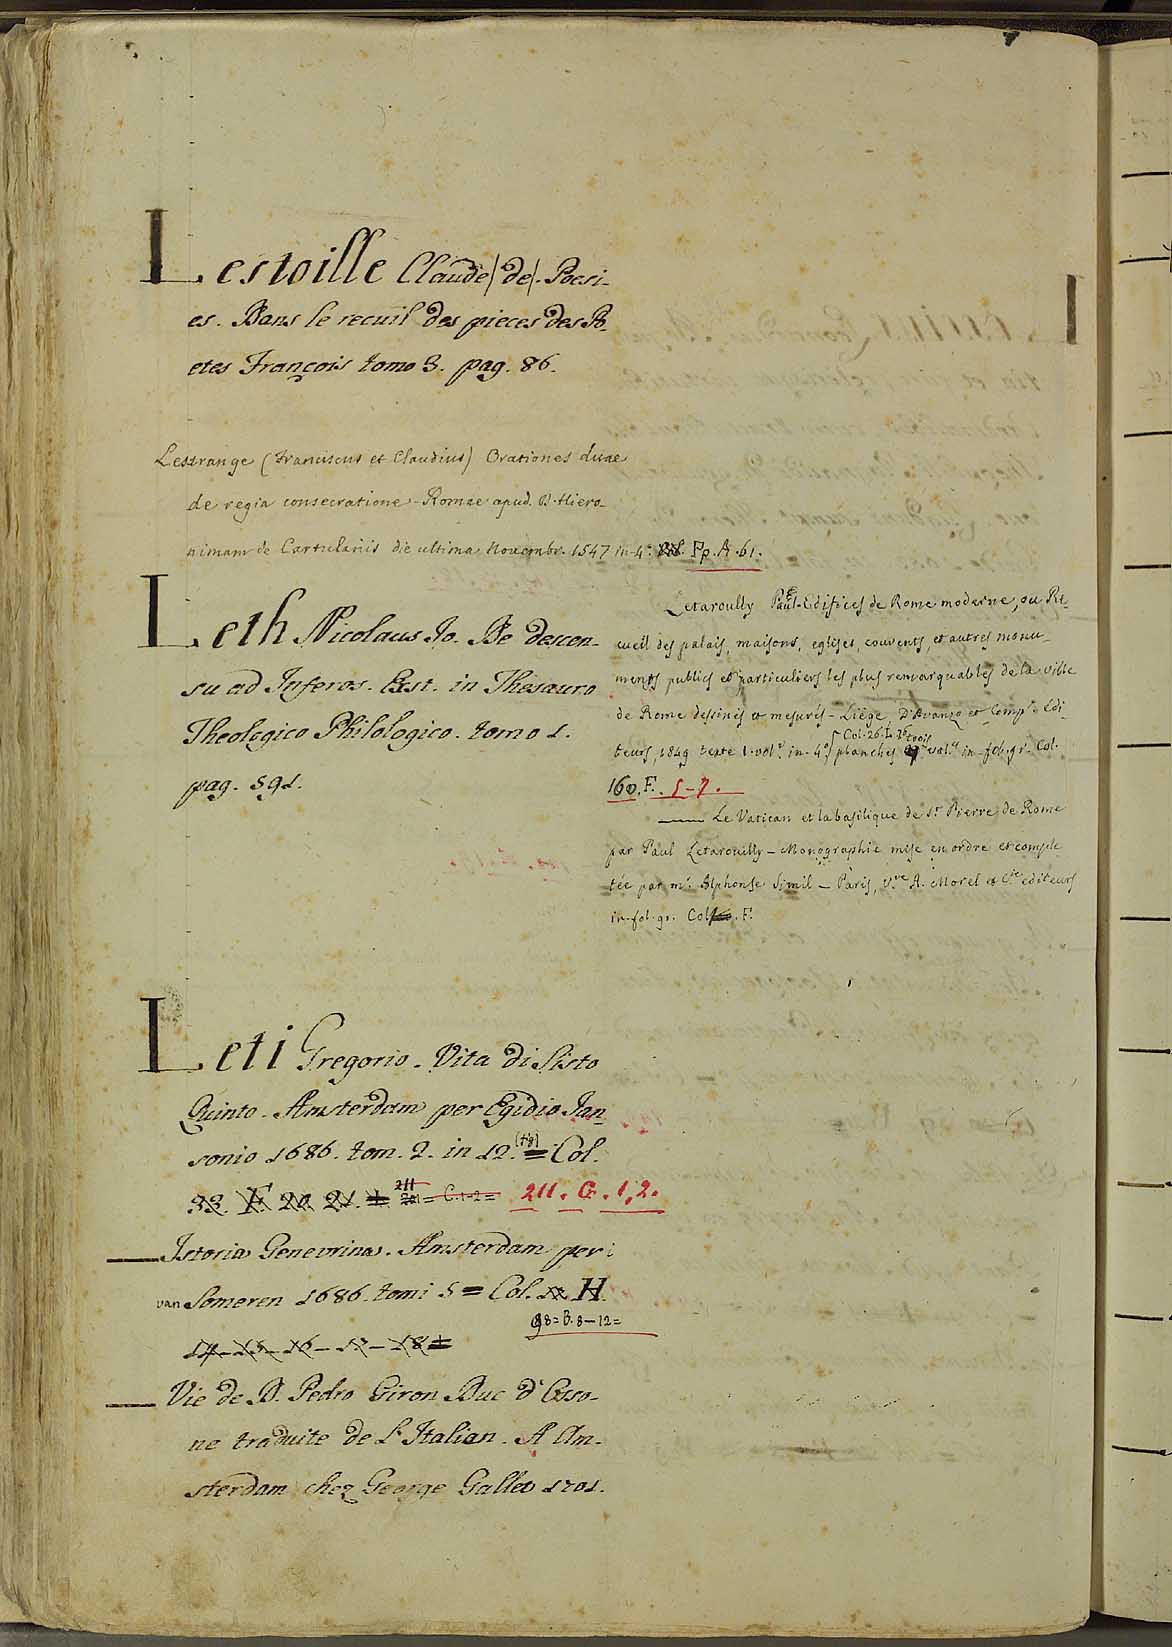 Lestoille Claude (de). Poesi-
es. Dans le recuil des pieces des Po-
etes François tomo 3. pag. 86.
Lestrange (Franciscus et Claudius) Orationes duae
de regia consecratione - Romae apud B. Hiero-
nimam de Cartulariis die ultima Novembr. 1547 in-4.° Pp. A. 61.
Leth Nicolaus Jo. De descen-
su ad Inferos. Exst. in Thesauro
Theologico Philologico. tomo 1.
pag. 591.
Letarouilly Paul - Edifices de Rome moderne, ou Re-
cueil des palais, maisons, eglises, couvents, et autres monu-
ments publics et particuliers les plus remarquables de la ville
de Rome dessinés et mesurés - Liège, D'Avanzo et Comp.e Edi-
teurs, 1849 texte 1. vol.e in-4.° planches trois vol.s in-fol. gr. Col.
Col. 26. L. 26
160. F. 5-7.
— Le Vatican et la basilique de St Pierre de Rome
par Paul Letarouilly - Monographie mise en ordre et comple-
tée par mr. Alphonse Simil - Paris, V.ve A. Morel et C.ie editeurs
in-fol. gr. Col. F.
Leti Gregorio. Vita di Sisto
Quinto. Amsterdam per Egidio Jan-
sonio 1686. tom. 2. in 12. = Col.
33. F. 20. 21. 211 = G. 1-2 = 211. G. 1,2.
— Istoria Genevrina. Amsterdam per
van Someren 1686. tomi 5 = Col. H
98 = B. 8-12 =
14 - 15 - 16 - 17 - 18 =
— Vie de D. Pedro Giron Duc d'Osso-
ne traduite de l'Italien. A Am-
sterdam chez George Gallet 1701.